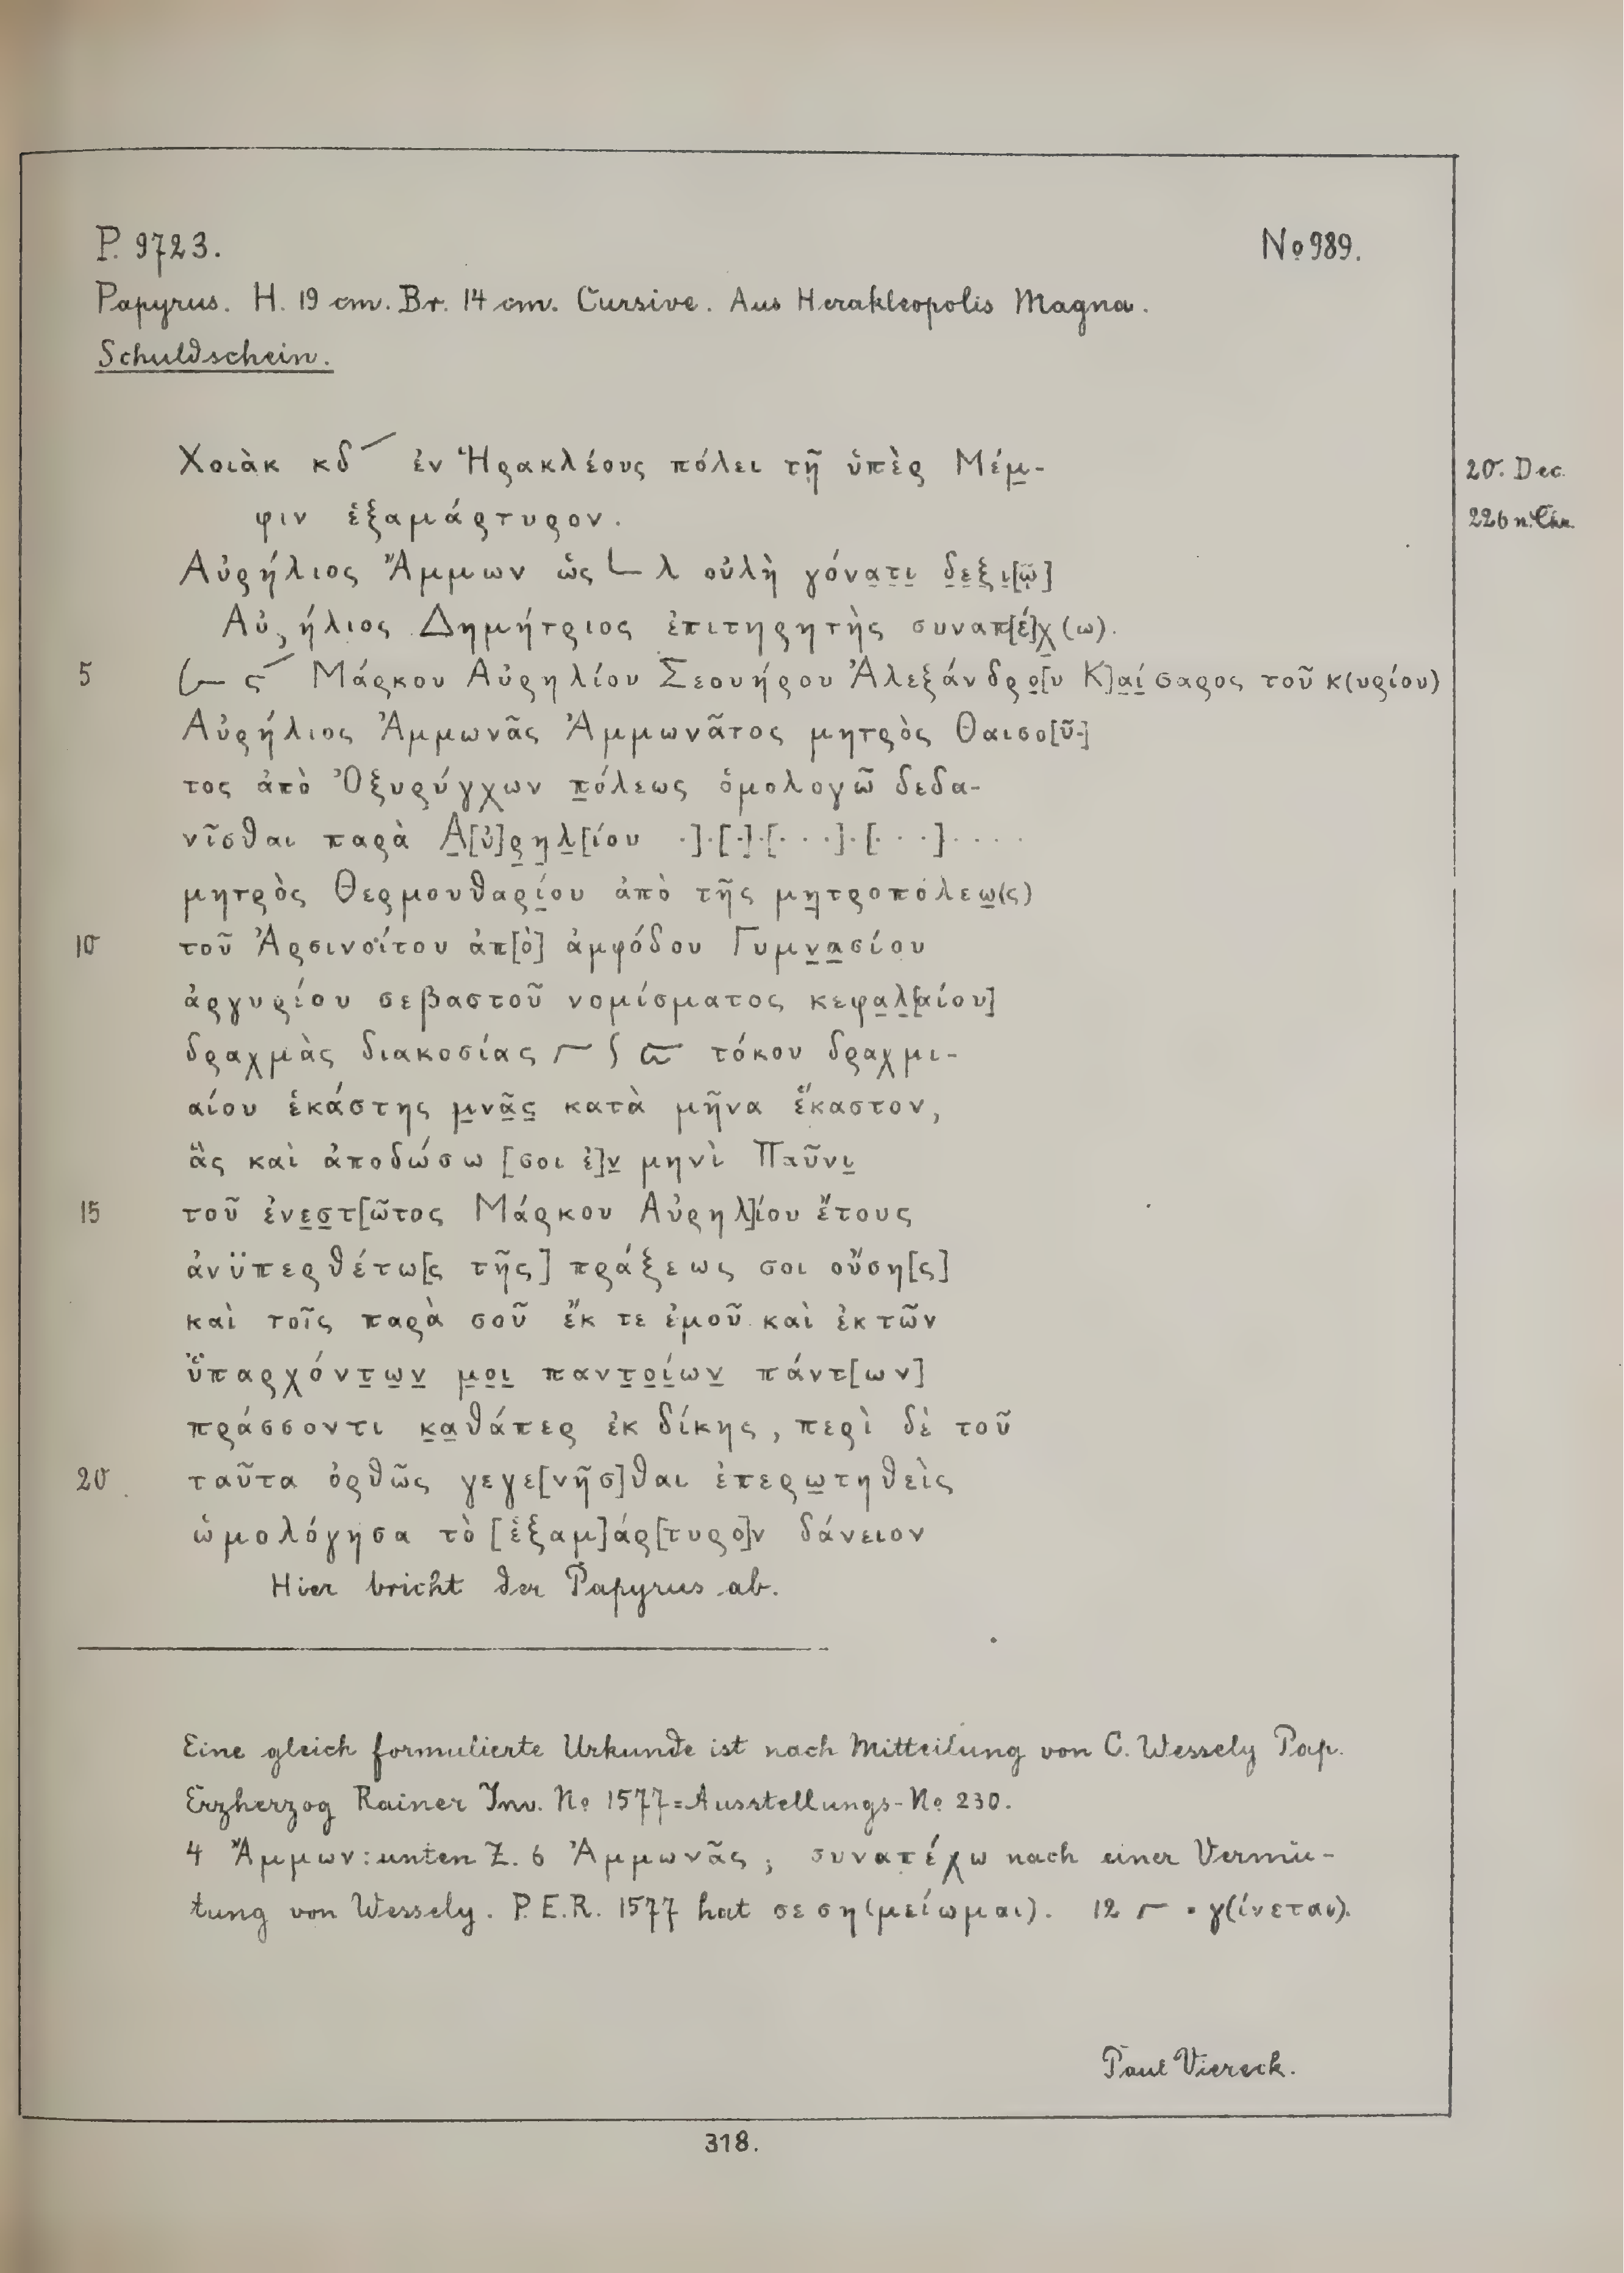 P. 9723. No 989.
Papyrus. H. 19 cm. Br. 14 cm. Cursive. Aus Herakleopolis Magna.
Schuldschein.
Χοιὰκ κδ ἐν Ἡρακλέους πόλει τῇ ὑπὲρ Μέμ̲- 20. Dec.
φιν ἑξαμάρτυρον. 226 n. Chr.
Αὐρήλιος Ἄμμων ὡς L λ οὐλὴ γόνα̲τ̲ι̲ δ̲ε̲ξ̲ι̲[ῷ]
Αὐρήλιος Δημήτριος ἐπιτηρητὴς συναπ[έ]χ̲(ω).
5 (L ς Μάρκου Αὐρηλίου Σεουήρου Ἀλεξάνδρο̲[υ Κ]α̲ί̲σαρος τοῦ κ(υρίου)
Αὐρήλιος Ἀμμωνᾶς Ἀμμωνᾶτος μητρὸς Θαισο[ῦ-]
τος ἀπὸ Ὀξυρύγχων π̲όλεως ὁμολογῶ δεδα-
νῖσθαι παρὰ Α̲[ὐ]ρ̲η̲λ̲[ίου ·]·[·]·[· · ·]·[· · ·]· · · ·
μητρὸς Θερμουθαρί̲ου ἀπὸ τῆς μη̲τροπόλεω̲(ς)
10 τοῦ Ἀρσινοΐτου ἀπ[ὸ] ἀμφόδου Γυμν̲α̲σίου
ἀργυρίου σεβαστοῦ νομίσματος κεφα̲λ̲[αίου]
δραχμὰς διακοσίας 𐅻 ∫ ϖ τόκου δραχμι-
αίου ἑκάστης μ̲ν̲ᾶ̲ς̲ κατὰ μῆνα ἕκαστον,
ἃς καὶ ἀποδώσω [σοι ἐ]ν̲ μηνὶ Παῦνι̲
15 τοῦ ἐνε̲σ̲τ[ῶτος Μάρκου Αὐρηλ]ίου ἔτους
ἀνϋπερθέτω[ς τῆς] πράξεως σοι οὔση[ς]
καὶ τοῖς παρὰ σοῦ ἔκ τε ἐμοῦ καὶ ἐκ τῶν
ὑ̈παρχόντ̲ω̲ν̲ μ̲ο̲ι̲ παντ̲ο̲ί̲ων̲ πάντ[ων]
πράσσοντι κ̲α̲θάπερ ἐκ δίκης, περὶ δὲ τοῦ
20 ταῦτα ὀρθῶς γεγε[νῆσ]θαι ἐπερω̲τηθεὶς
ὡμολόγησα τὸ [ἑξαμ]άρ[τυρο]ν δάνειον
Hier bricht der Papyrus ab.
Eine gleich formulierte Urkunde ist nach Mitteilung von C. Wessely Pap.
Erzherzog Rainer Inv. No 1577=Ausstellungs-No 230.
4 Ἄμμων: unten Z. 6 Ἀμμωνᾶς; συναπέχω nach einer Vermu-
tung von Wessely. P.E.R. 1577 hat σεση(μείωμαι). 12 𐅻 · γ(ίνεται).
Paul Viereck.
318.